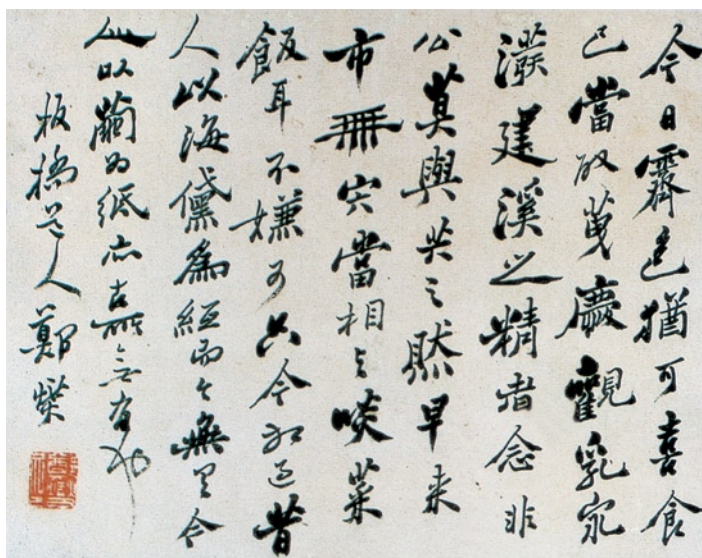 今日霽色猶可喜食
已當取天慶觀乳泉
潑建溪之精者念非
公莫與共之然早来
市無肉當相与啖菜
飯耳不嫌可只今相過昔
人以海黛爲紙而今無今
以繭为紙亦古無有也
板橋道人鄭燮